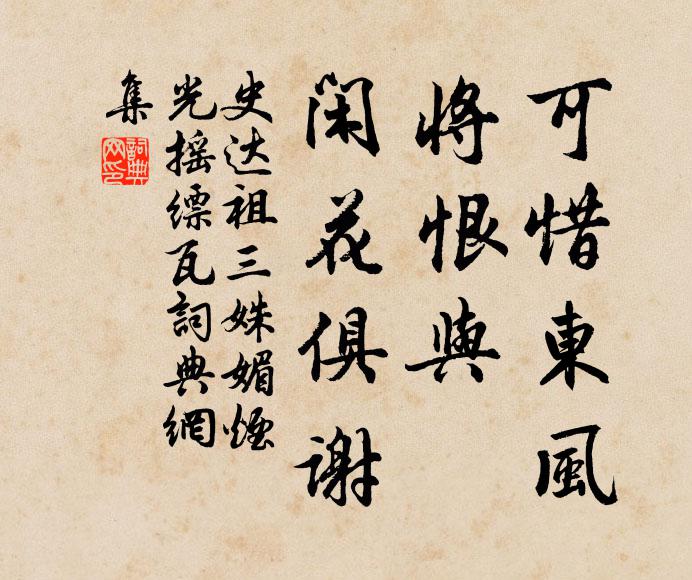 可惜東風
將恨與
閑花俱謝
史达祖三姝媚煙
光摇缥瓦詞典網
集
詞典網印